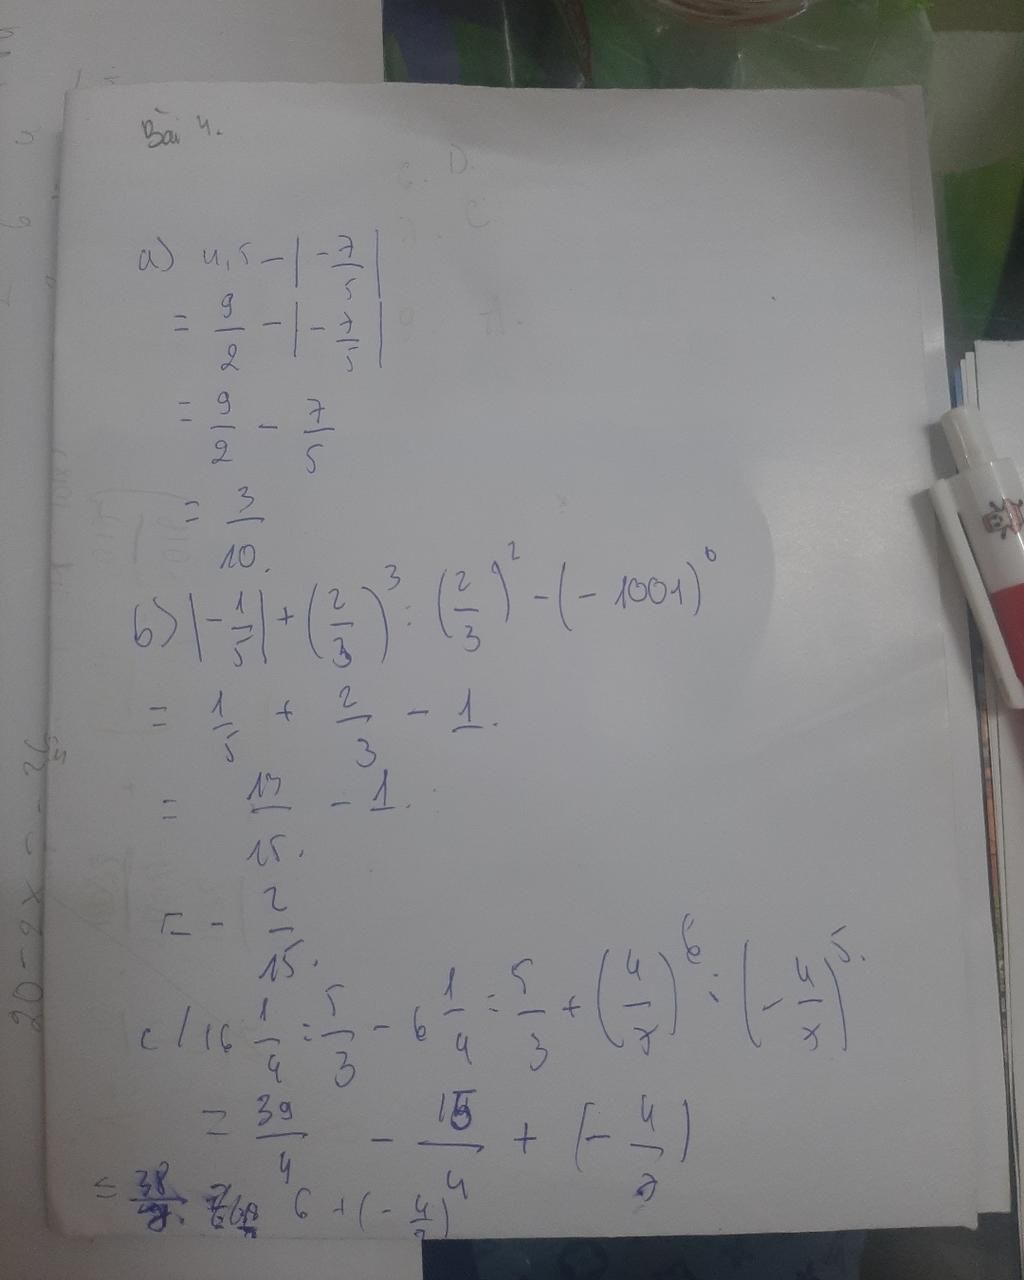 Bài 4.
a) 4,5 - |-7/5|
= 9/2 - |-7/5|
= 9/2 - 7/5
= 3/10.
b) |-1/5| + (2/3)^3 : (2/3)^2 - (-1001)^0
= 1/5 + 2/3 - 1.
= 13/15. - 1.
= - 2/15.
c/ 16 1/4 : 5/3 - 6 1/4 : 5/3 + (4/7)^6 : (-4/7)^5.
= 39/4 - 15/4 + (-4/7)
= 6 + (-4/7)
20 - 9x = -26